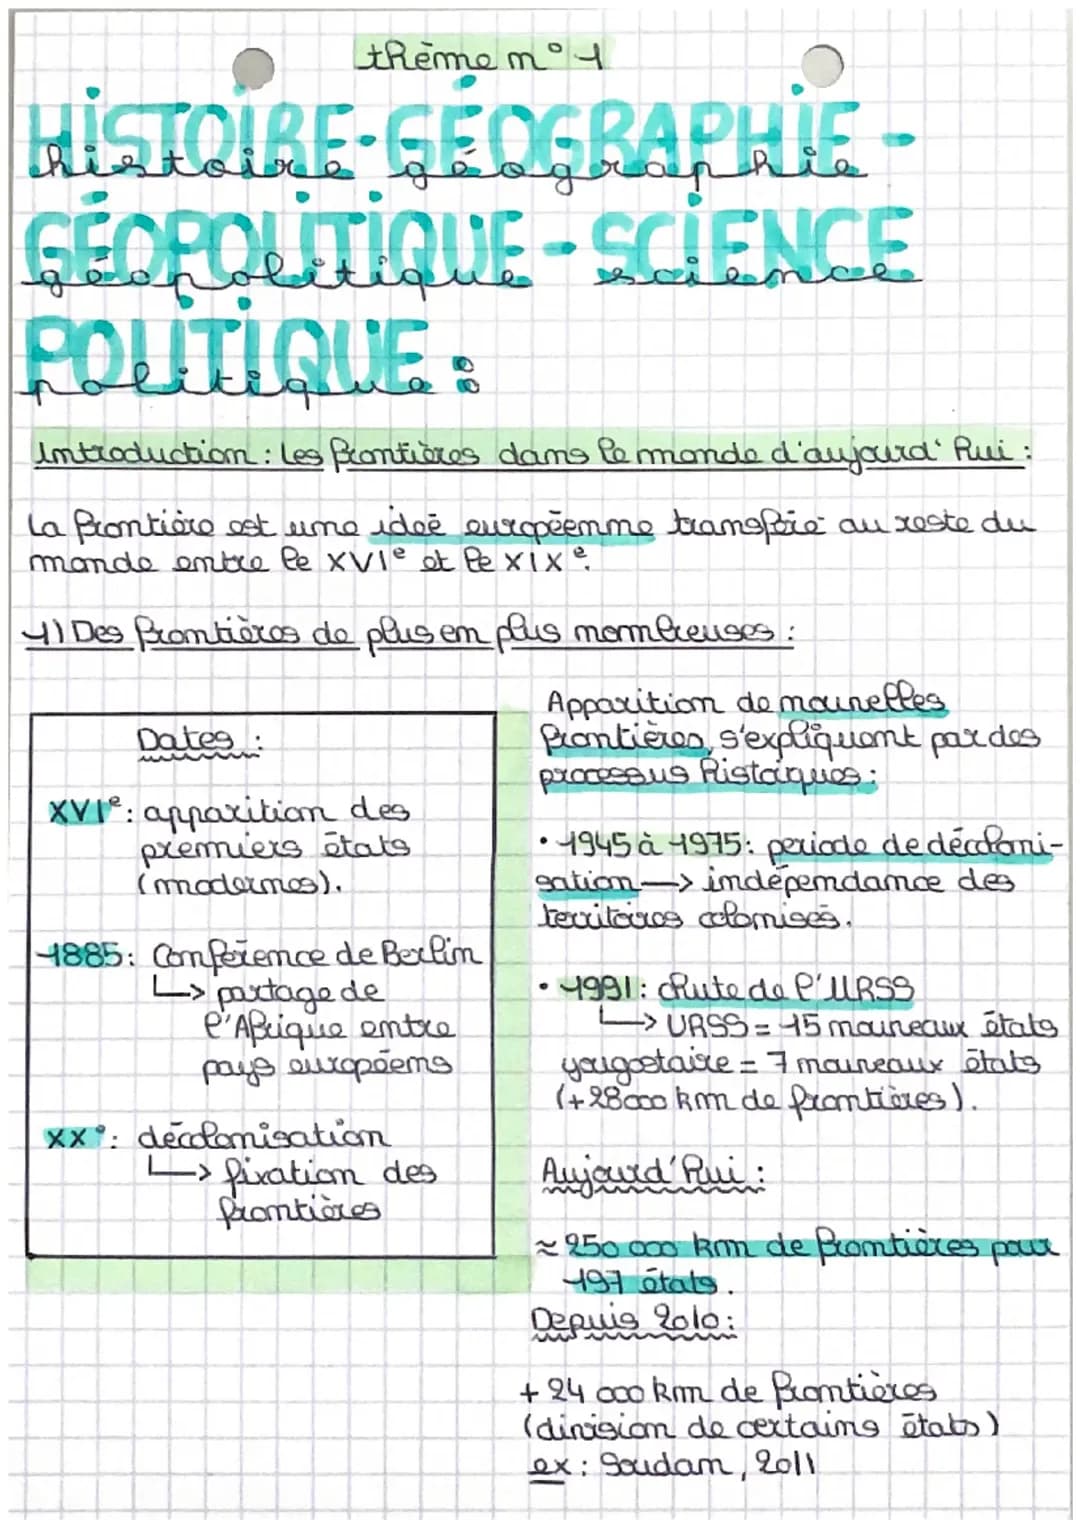 thème n°1
HISTOIRE-GÉOGRAPHIE -
histoire géographie
GÉOPOLITIQUE - SCIENCE
géopolitique science
POLITIQUE :
politique
Introduction : Les frontières dans le monde d'aujourd'hui :
La frontière est une ideé européenne transférée au reste du
monde entre le XVIe et le XIXe.
1) Des frontières de plus en plus nombreuses :
Dates :
XVIe : apparition des
premiers états
(modernes).
1885 : Conférence de Berlin
↳ partage de
l'Afrique entre
pays européens
XXe : décolonisation
↳ fixation des
frontières
Apparition de nouvelles
frontières, s'expliquant par des
processus historiques :
• 1945 à 1975 : periode de décoloni-
sation → indépendance des
territoires colonisés.
• 1991 : chute de l'URSS
↳ URSS = 15 nouveaux états
yougoslavie = 7 nouveaux états
(+ 28000 km de frontières).
Aujourd'hui :
≈ 250 000 km de frontières pour
197 états.
Depuis 2010 :
+ 24 000 km de frontières
(division de certains états)
ex : Soudan, 2011